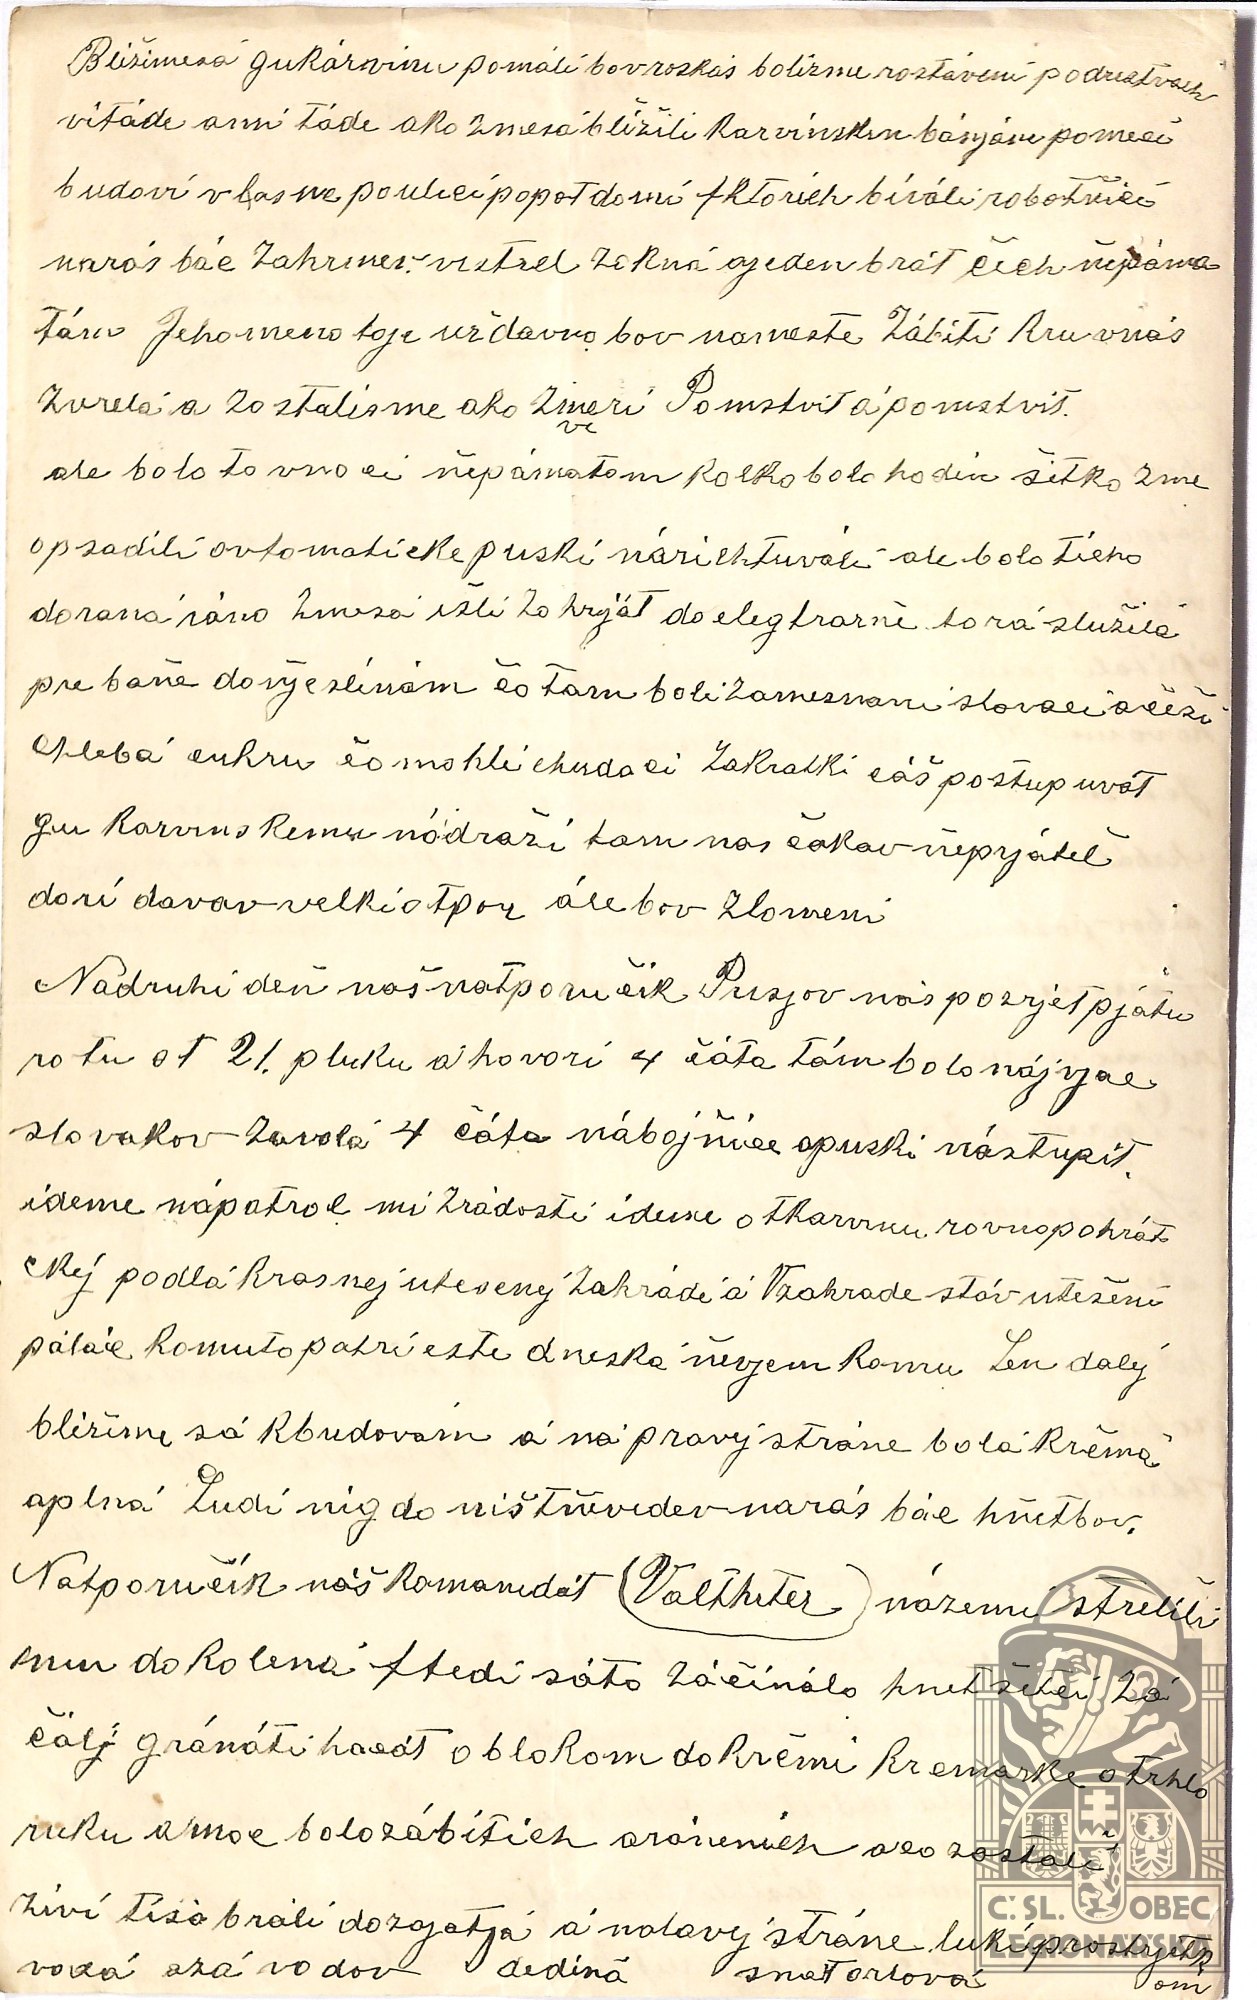 Bližimesá gukárvinu pomáli bov roskás bolizme rostáveni podrustvach
vitáde anni táde ako zmesá bližili karvinskim báňjám pomeci
budovi vlasne poulici popot domi fktorich biváli robotňici
narás bác zahrmev vistrel zokná ajeden brát čech ňepáma
tám Jehomeno toje uždavno bov nameste zábiti kru vnás
zvrela a zostalisme ako zmeri Pomstvit á pomstvit.
ve
ale bolo to vnoci ňepámatom kolko bolo hodin šitko zme
opsadili avtomaticke puski nárichtuváli ale bolo ticho
doraná ráno zmesá išli zohrjat do elegtrarňe torá slúžila
pre baňe doňjeslinám čo tam boli zamesnani slovaci ačési
chlebá cukru čo mohli chudaci zakratki cás postupuvát
gu karvinskemu nádraži tam nas čakav ňeprjátel
dosi davav velki otpor ále bov zlomeni
Nádruhi deň naš natporučik Pusjov nás pozrjet pjátu
rotu ot 21. pluku á hovori 4 čáta tám bolo nájvjac
slovakov zavolá 4 čáta nábojňice apuski nástupit.
ideme nápatrol mi zrádosti ideme otkarvinu rovno pohrát
ckej podlá krasnej utesenej záhrádi á vzahrade stáv utešeni
palác komuto patri este dneská ňevjem komu Len dalej
bližime sá kbudovám á na pravej stráne bolá krčmá
aplná Ludi nigdo ništ ňevidev narás bác hňetbov.
Natporučik náš komandát (Valthter) názemi strelili
mu do kolená ftedi sáto záčinálo hnet šitci zá
čáli gránáti hacát oblokom do krčmi kremarke otrhlo
ruku amoc bolo zábitich aránenich ako zostali
živi tisá bráli dozajatjá á nalavej stráne luki prostrjetk
vodá azá vodov dediná smat orlová om
C.SL. OBEC
LEGIONÁŘSKÁ